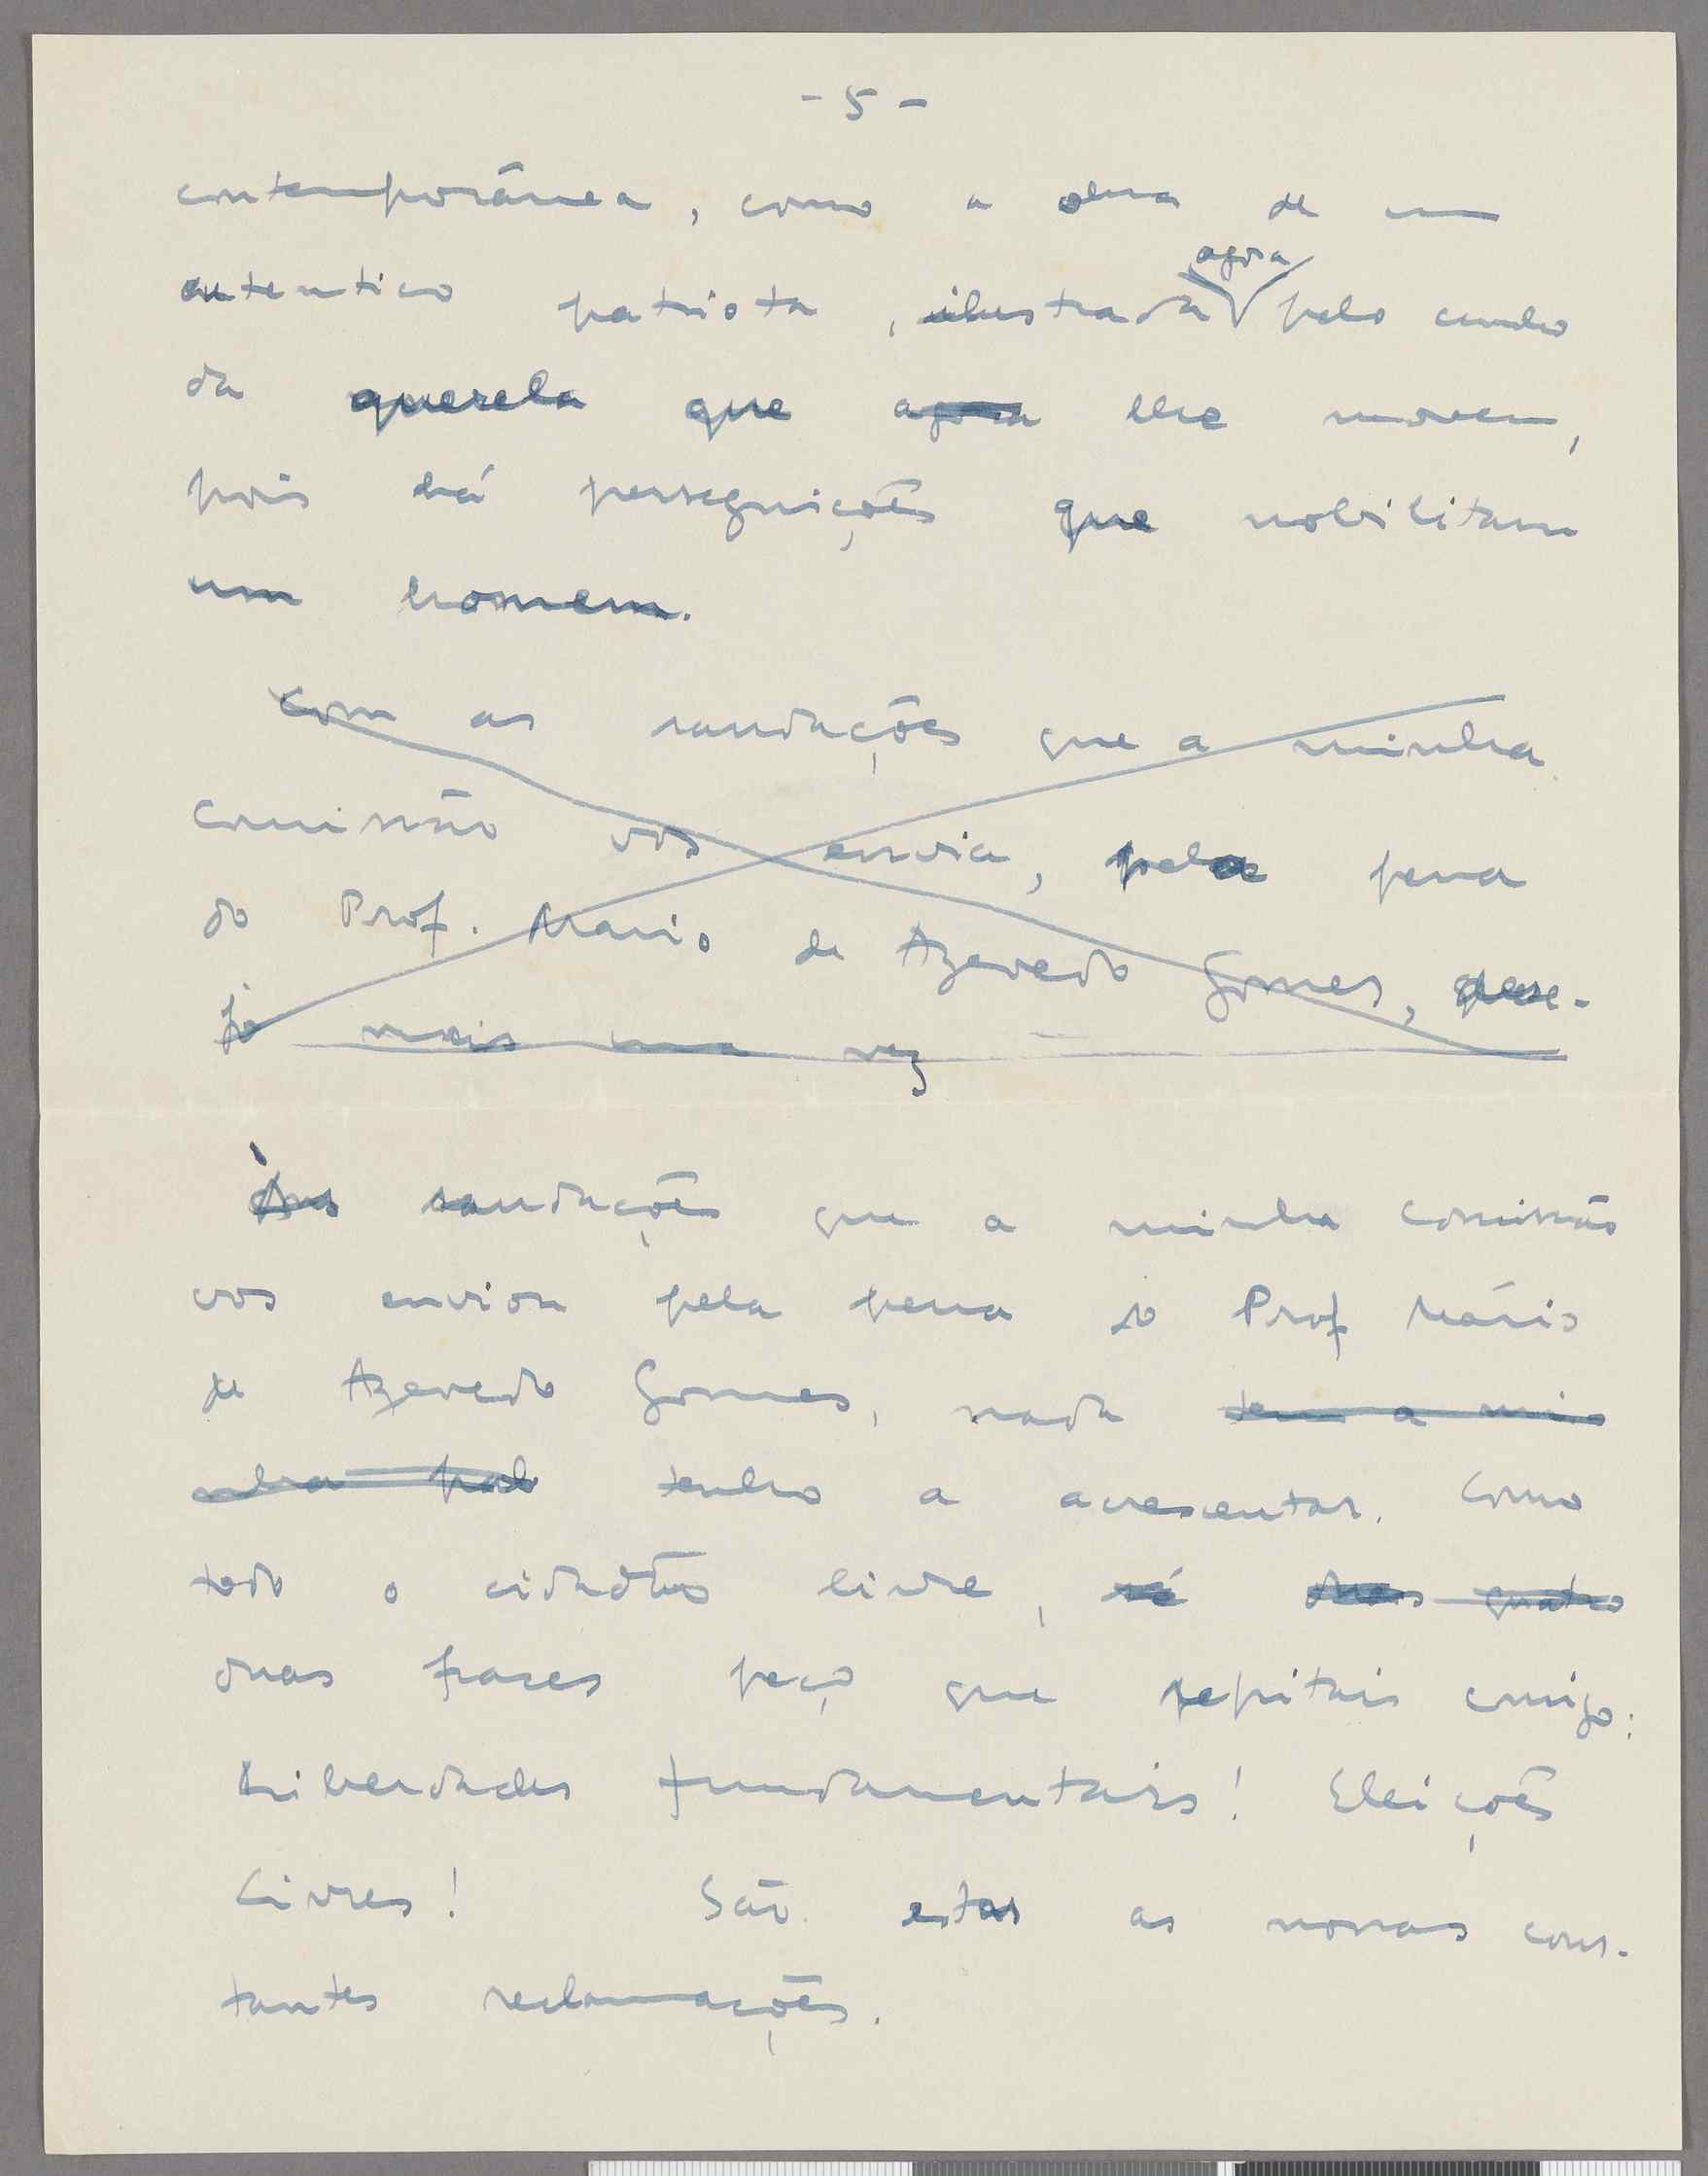 - 5 -
contemporânea, como a obra de um
agora
autentico patriota, ilustrada pelo cunho
da querela que agora lhe movem,
pois há perseguições que nobilitam
um homem.
Com as saudações que a minha
comissão vos envia, pela pena
do Prof. Mario de Azevedo Gomes, dese-
jo mais uma vez
Às saudações que a minha comissão
vos enviou pela pena do Prof Mário
de Azevedo Gomes, nada tem a mi
nha pal tenho a acrescentar. Como
todo o cidadão livre, só duas quatro
duas frases peço que repitais comigo:
Liberdades fundamentais! Eleições
Livres! São estas as nossas cons-
tantes reclamações.